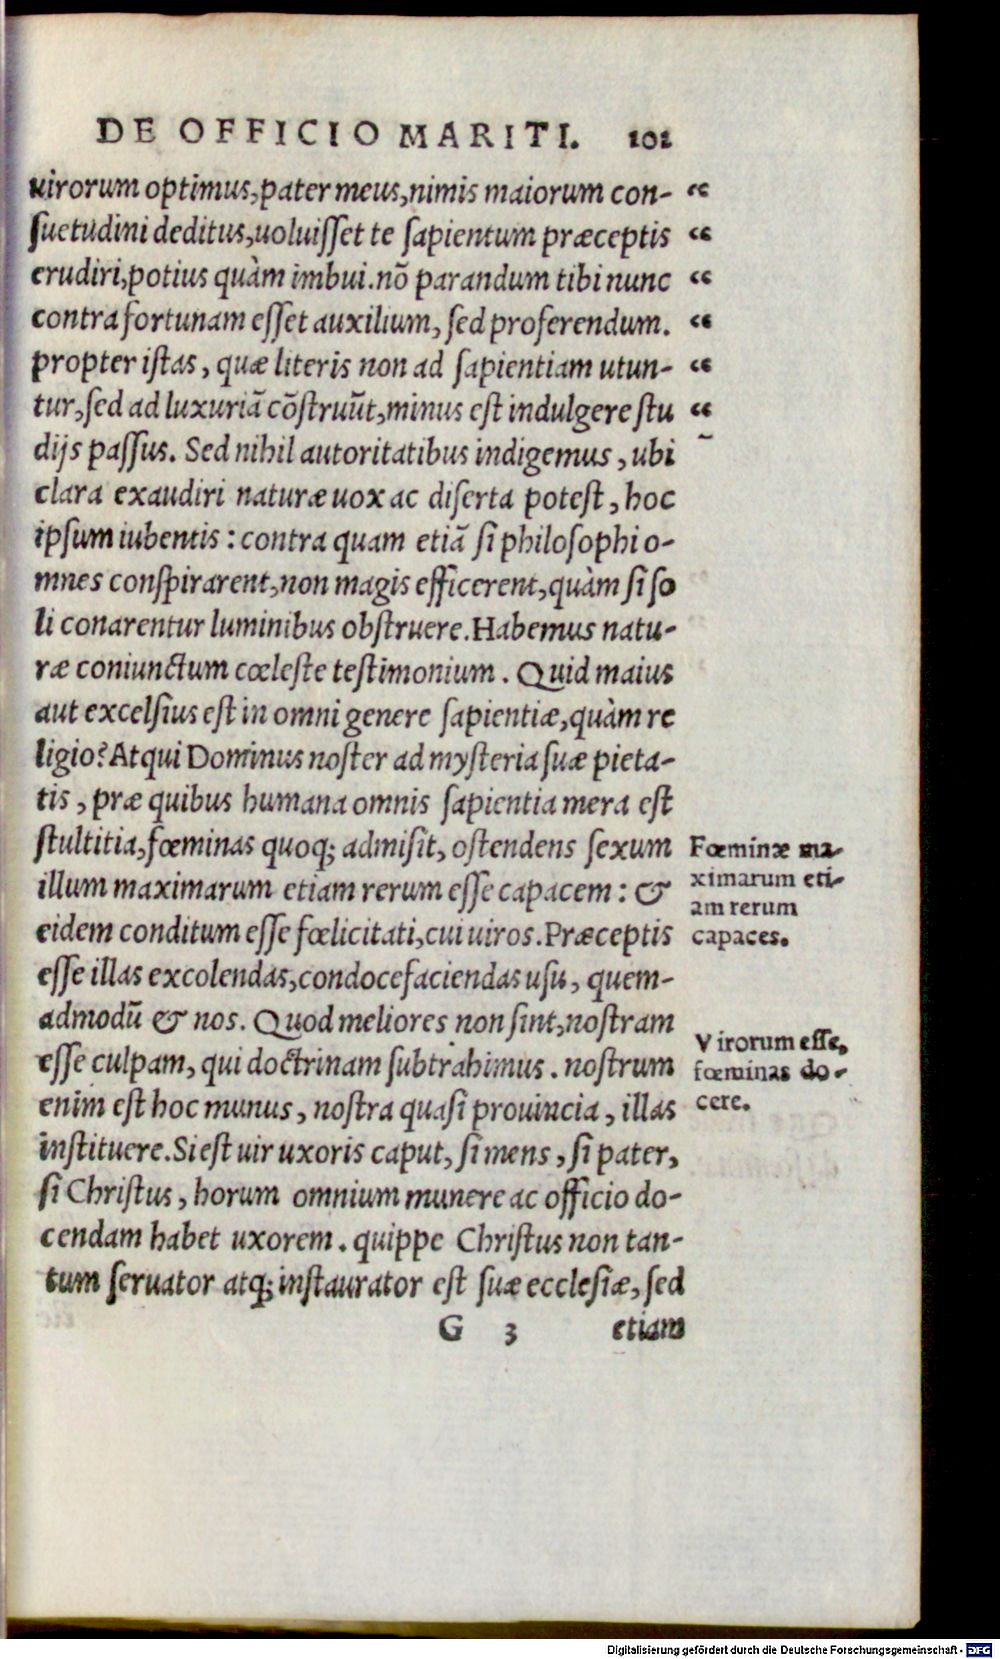 DE OFFICIO MARITI. 101
uirorum optimus, pater meus, nimis maiorum con- “
ſuetudini deditus, uoluiſſet te ſapientum præceptis “
erudiri, potius quàm imbui. nō parandum tibi nunc “
contra fortunam eſſet auxilium, ſed proferendum. “
propter iſtas, quæ literis non ad ſapientiam utun- “
tur, ſed ad luxuriā cōſtruūt, minus eſt indulgere ſtu “
dijs paſſus. Sed nihil autoritatibus indigemus, ubi
clara exaudiri naturæ uox ac diſerta poteſt, hoc
ipſum iubentis: contra quam etiā ſi philoſophi o-
mnes conſpirarent, non magis efficerent, quàm ſi ſo
li conarentur luminibus obſtruere. Habemus natu-
ræ coniunctum cœleſte teſtimonium. Quid maius
aut excelſius eſt in omni genere ſapientiæ, quàm re
ligio? Atqui Dominus noſter ad myſteria ſuæ pieta-
tis, præ quibus humana omnis ſapientia mera eſt
ſtultitia, fœminas quoq; admiſit, oſtendens ſexum
illum maximarum etiam rerum eſſe capacem: &
eidem conditum eſſe fœlicitati, cui uiros. Præceptis
eſſe illas excolendas, condocefaciendas uſu, quem-
admodū & nos. Quod meliores non ſint, noſtram
eſſe culpam, qui doctrinam ſubtrahimus. noſtrum
enim eſt hoc munus, noſtra quaſi prouincia, illas
inſtituere. Si eſt uir uxoris caput, ſi mens, ſi pater,
ſi Chriſtus, horum omnium munere ac officio do-
cendam habet uxorem. quippe Chriſtus non tan-
tum ſeruator atq; inſtaurator eſt ſuæ eccleſiæ, ſed
G 3 etiam
Fœminæ ma-
ximarum eti-
am rerum
capaces.
Virorum eſſe,
fœminas do-
cere.
Digitalisierung gefördert durch die Deutsche Forschungsgemeinschaft - DFG